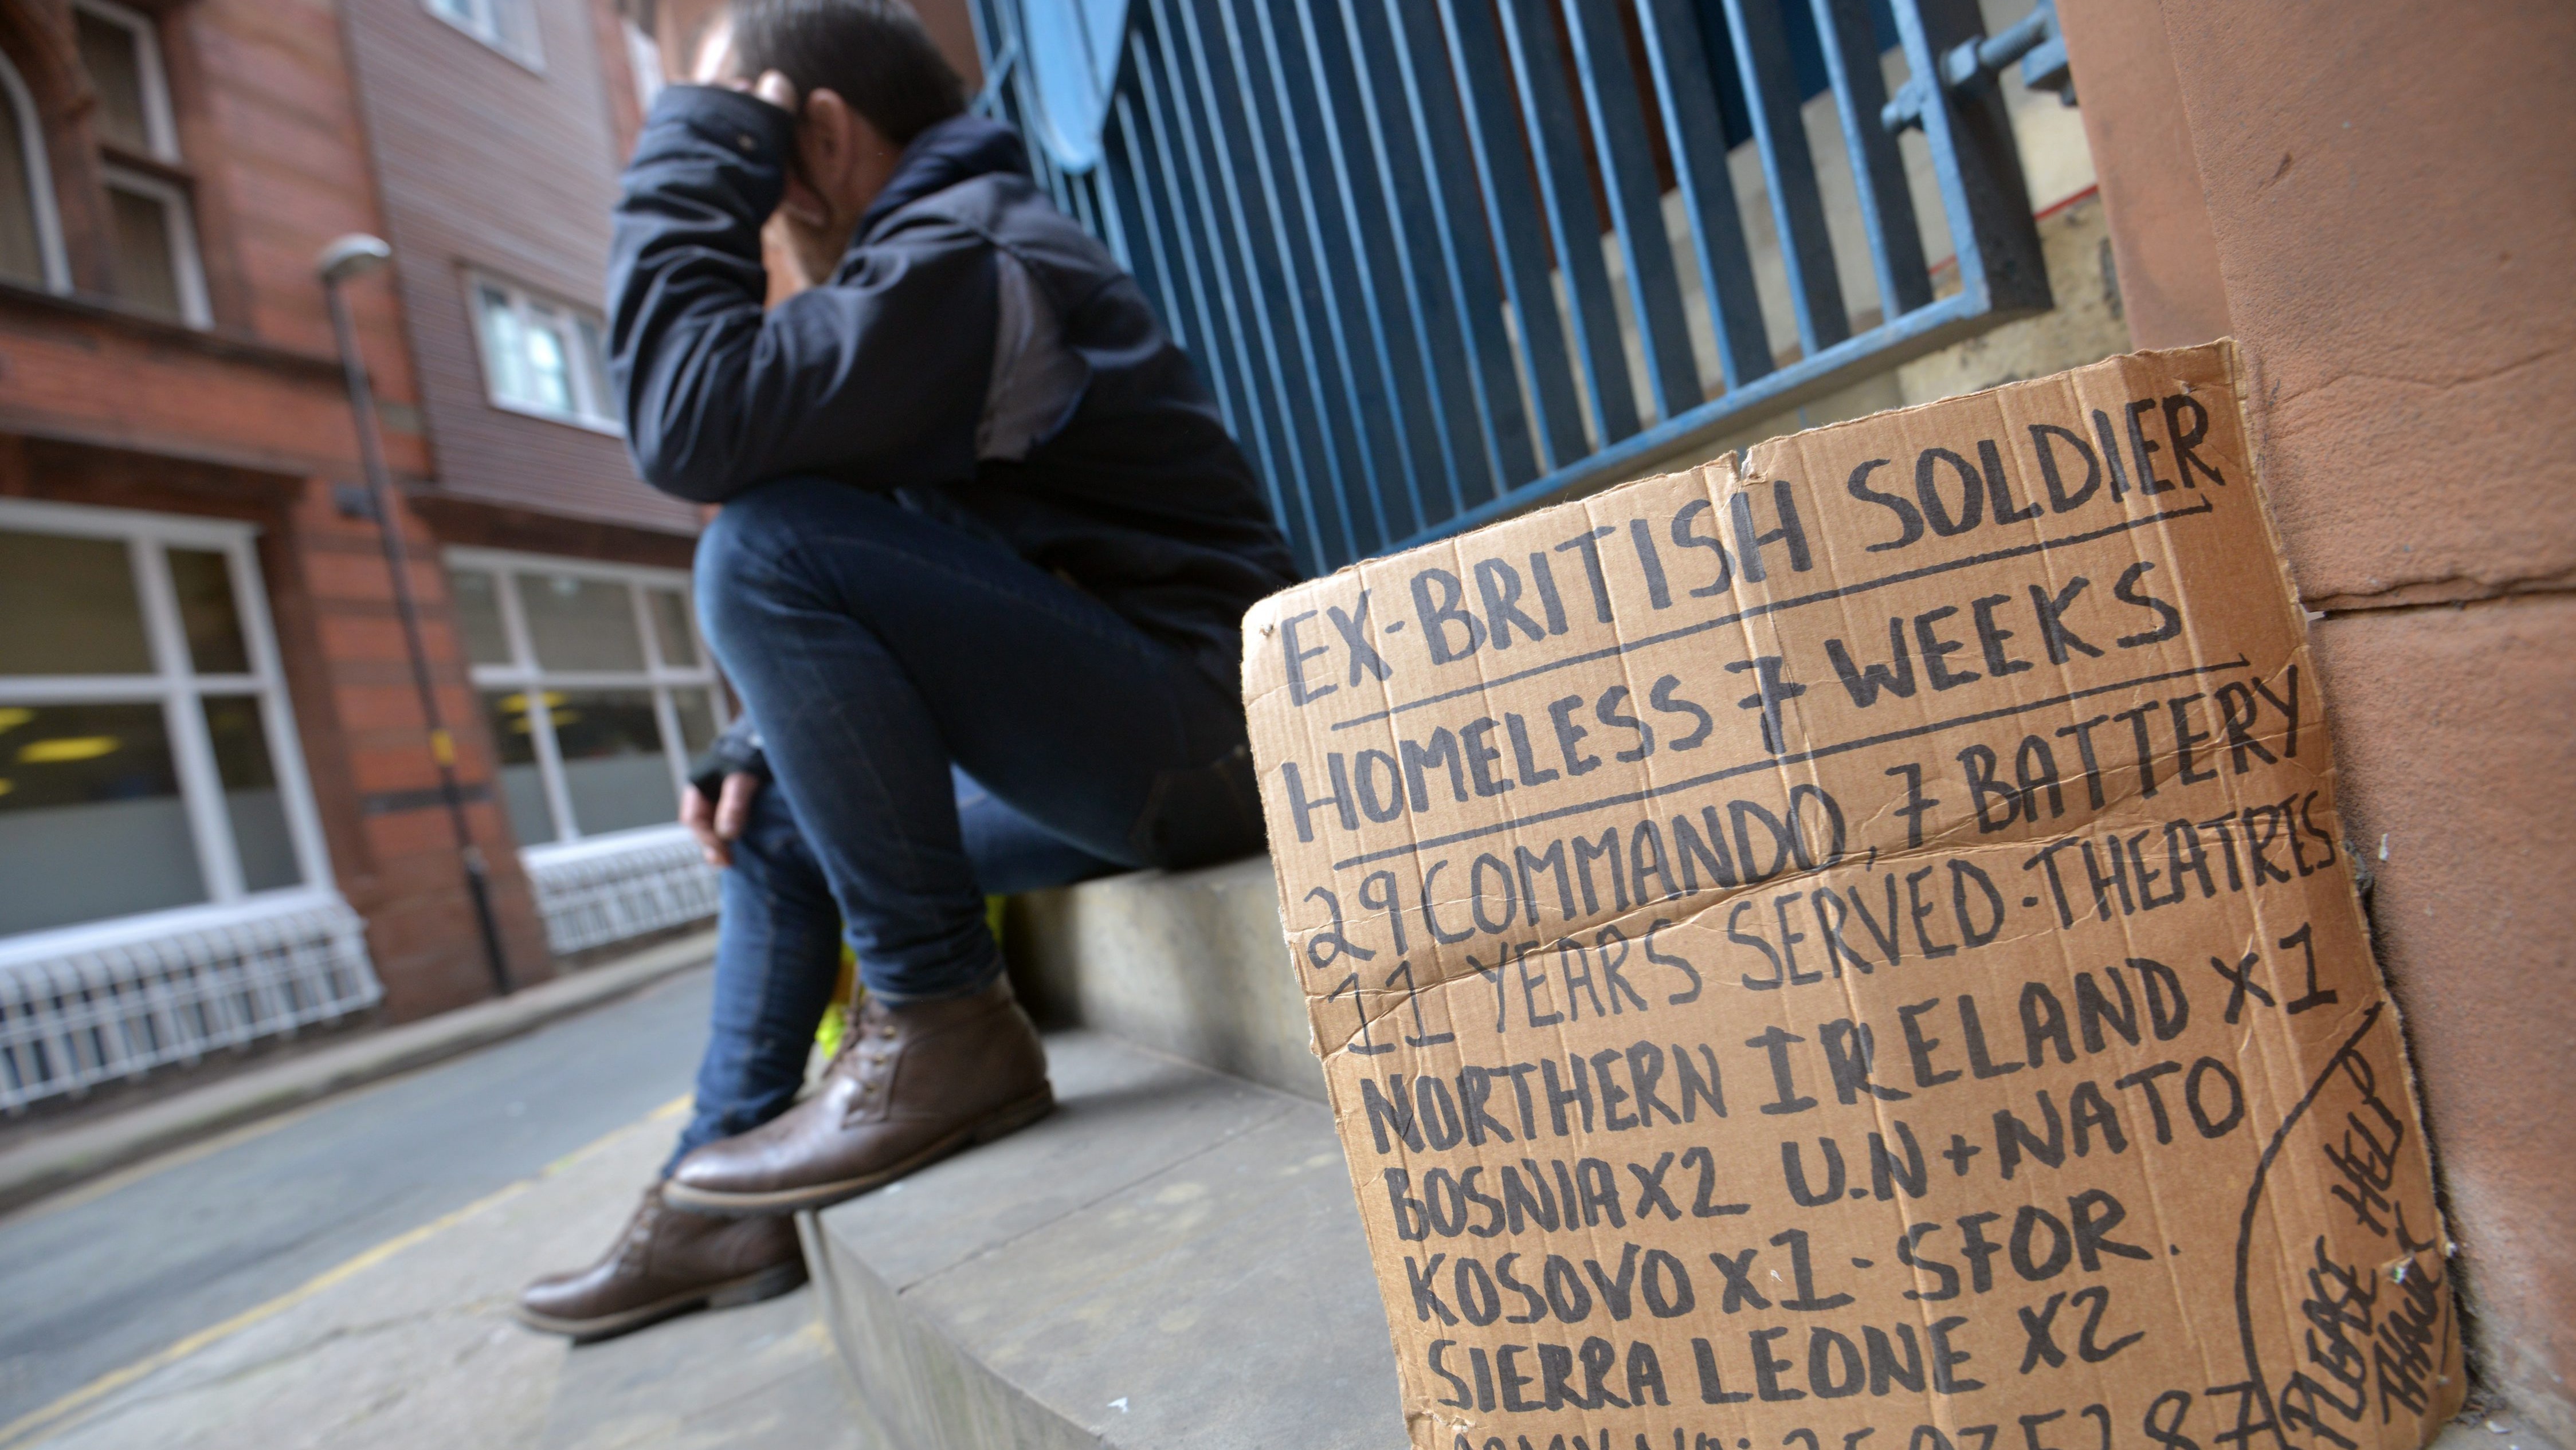 EX-BRITISH SOLDIER
HOMELESS 7 WEEKS
29 COMMANDO, 7 BATTERY
11 YEARS SERVED - THEATRES
NORTHERN IRELAND X 1
BOSNIA X2 U.N + NATO
KOSOVO X1 - SFOR.
SIERRA LEONE X2
ARMY NO:
PLEASE HELP
THANK